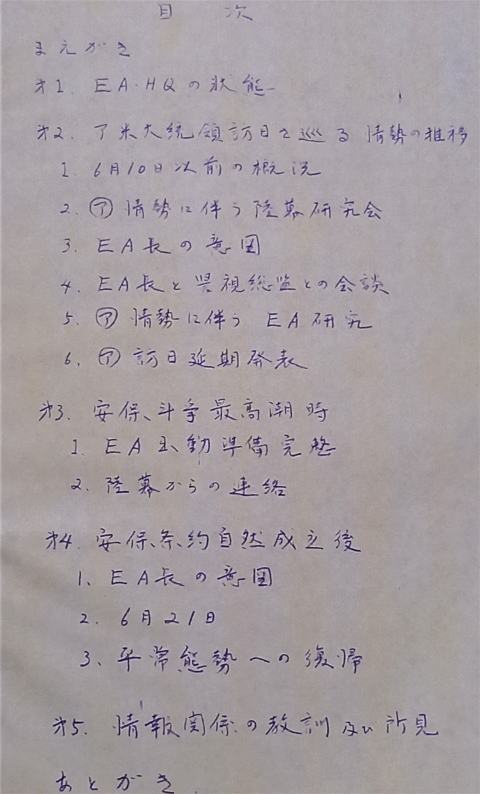 目 次
まえがき
才1. EA・HQの状態
才2. ア米大統領訪日を巡る情勢の推移
1. 6月10日以前の概況
2. ㋐情勢に伴う陸幕研究会
3. EA長の意図
4. EA長と警視総監との会談
5. ㋐情勢に伴うEA研究
6. ㋐訪日延期発表
才3. 安保、斗争最高潮時
1. EA出動準備完整
2. 陸幕からの連絡
才4. 安保条約自然成立後
1. EA長の意図
2. 6月21日
3. 平常態勢への復帰
才5. 情報関係の教訓及び所見
あとがき